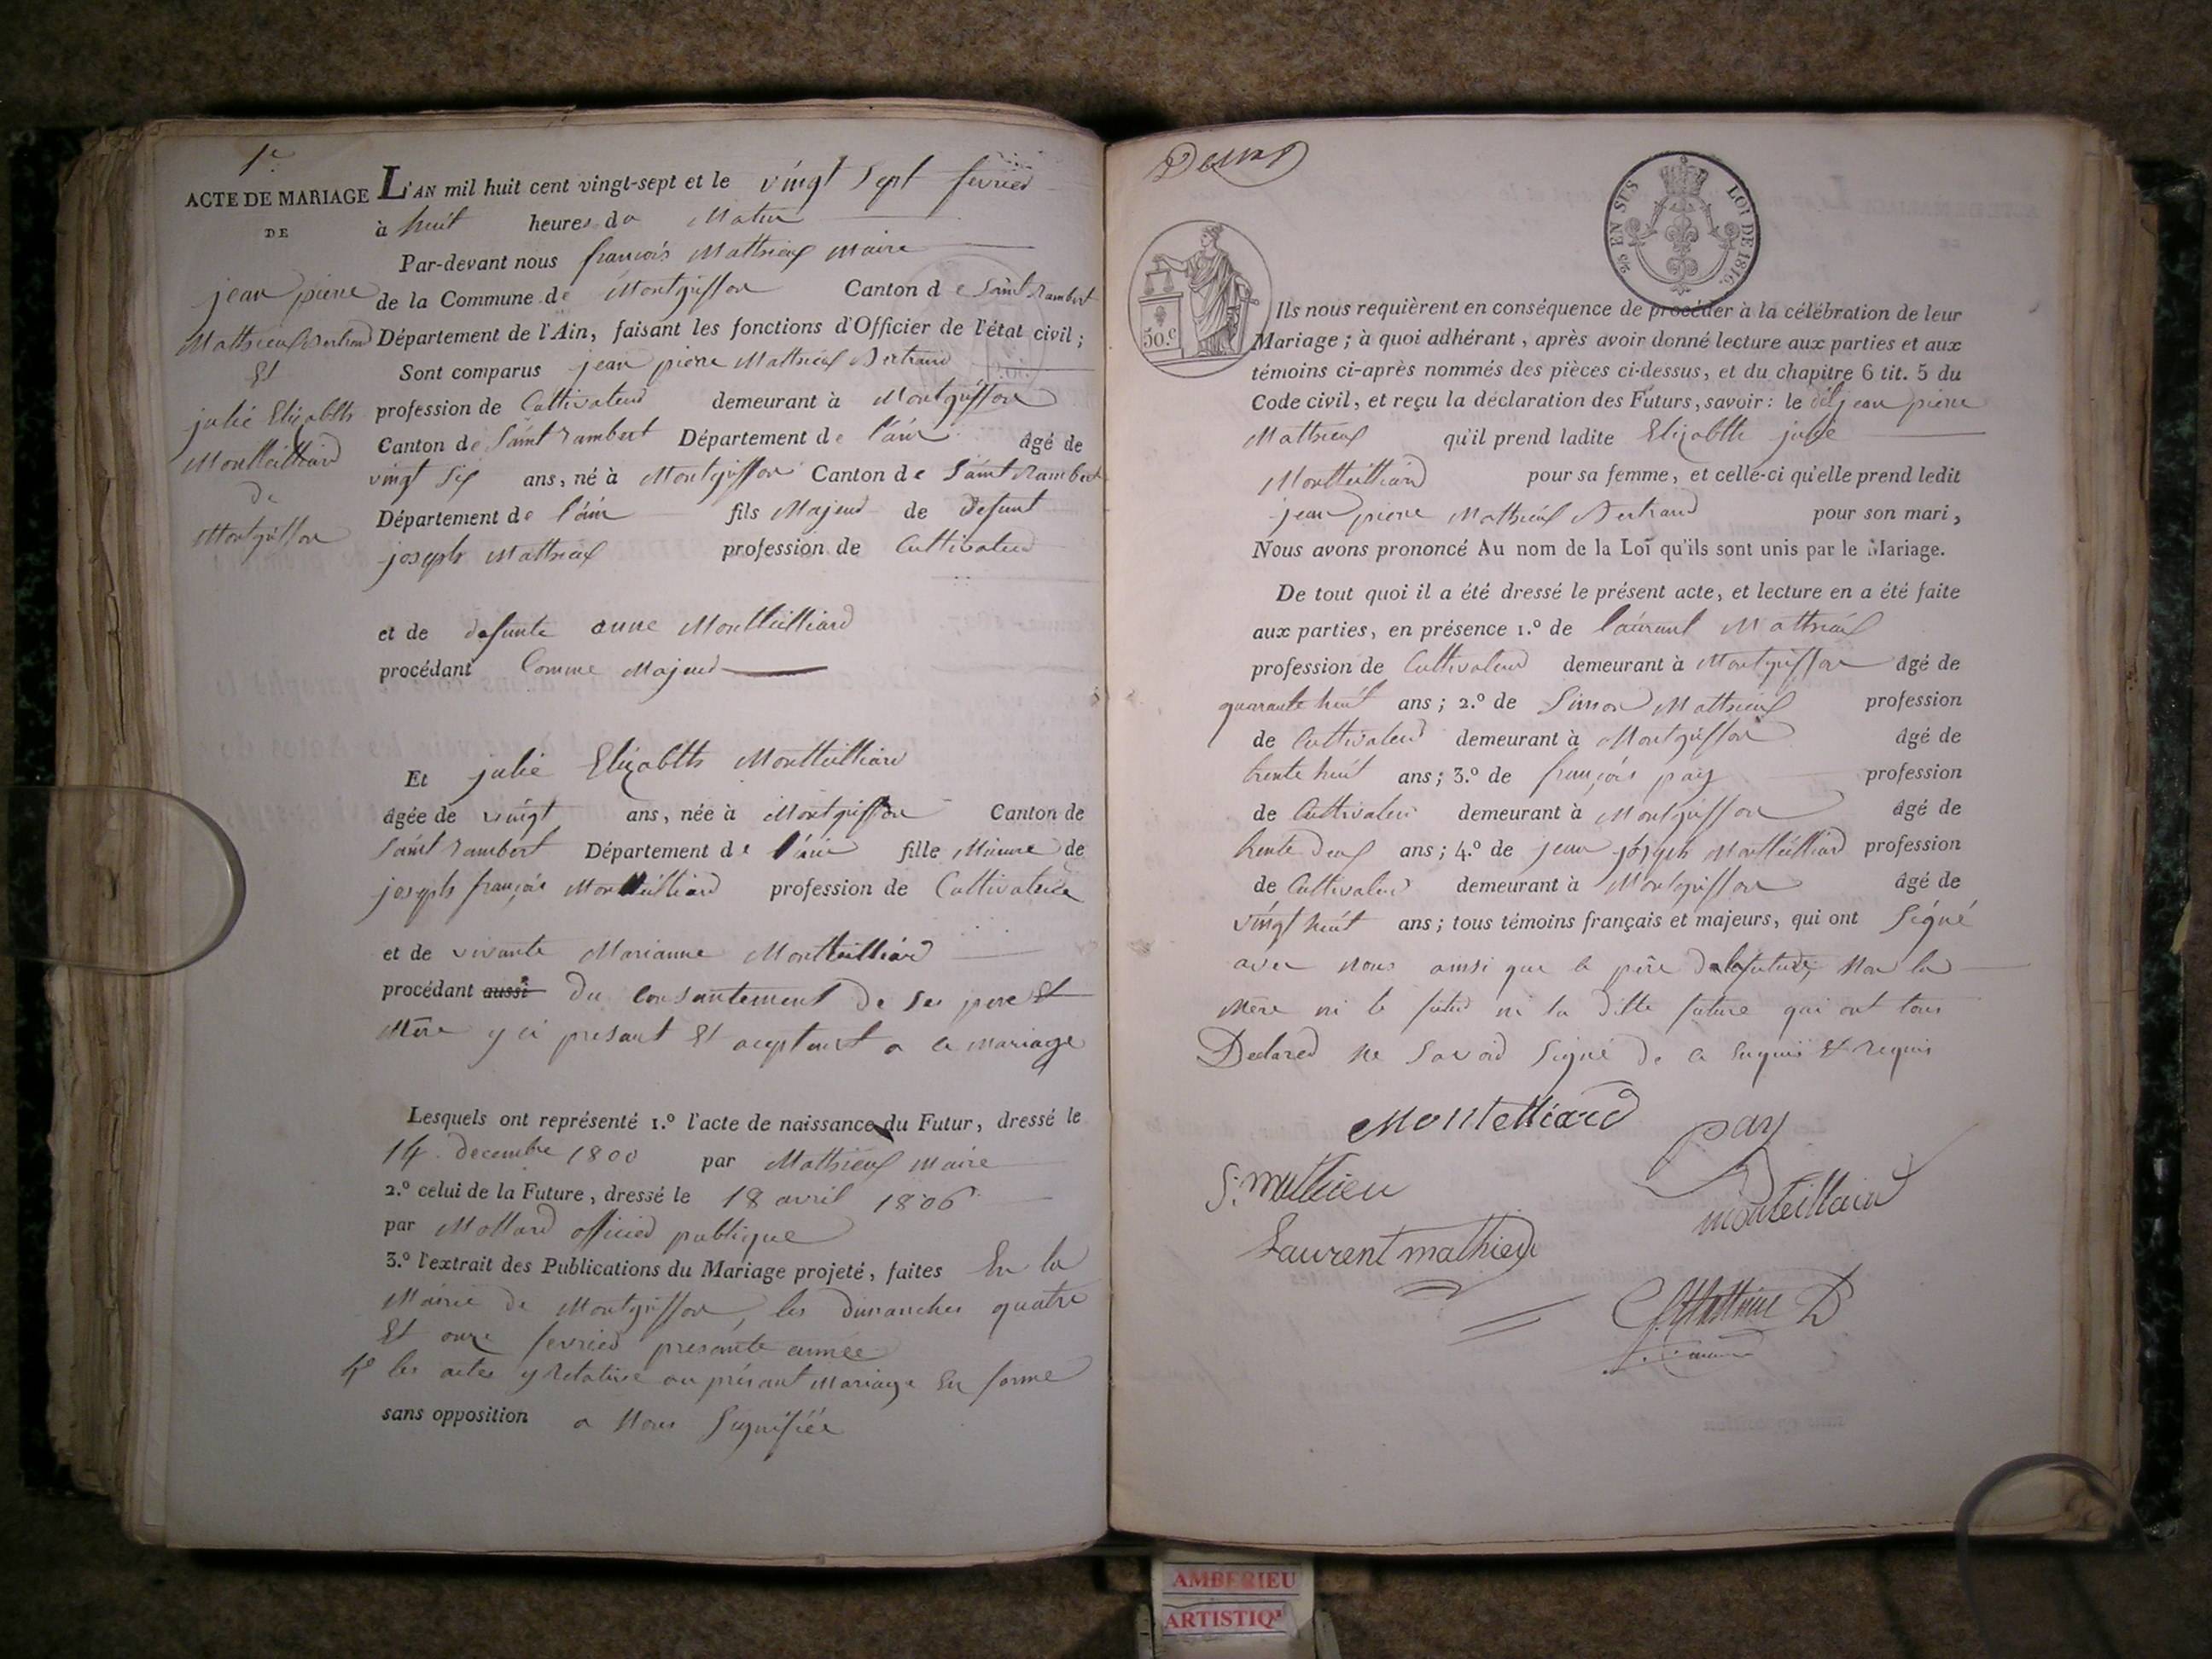 1.e
ACTE DE MARIAGE
DE
jean pierre
Mathieux Bertrand
Et
julie Elizabeth
Monteilliard
de
Montgriffon
L'AN mil huit cent vingt-sept et le vingt Sept fevrier
à huit heures du Matin
Par-devant nous françois Mathieux maire
de la Commune de Montgriffon Canton de Saint Rambert
Département de l'Ain, faisant les fonctions d'Officier de l'état civil;
Sont comparus jean pierre Mathieux Bertrand
profession de Cultivateur demeurant à Montgriffon
Canton de Saint Rambert Département de l'ain âgé de
vingt Six ans, né à Montgriffon Canton de Saint Rambert
Département de l'ain fils Majeur de defunt
joseph Mathieux profession de Cultivateur
et de defunte anne Monteilliard
procédant Comme Majeur
Et julie Elizabeth Monteilliard
âgée de vingt ans, née à Montgriffon Canton de
Saint Rambert Département de l'ain fille Mineure de
joseph françois Monteilliard profession de Cultivateur
et de vivante Marianne Monteilliard
procédant aussi du Consantement de Ses pere Et
Mère y ci presant Et aceptant a ce mariage
Lesquels ont représenté 1.º l'acte de naissance du Futur, dressé le
14 decembre 1800 par Mathieux maire
2.º celui de la Future, dressé le 18 avril 1806
par Mollard officier publique
3.º l'extrait des Publications du Mariage projeté, faites En la
Mairie de Montgriffon, les dimanches quatre
Et onze fevrier presante année
4º les actes y relative au présant Mariage En forme
sans opposition a Nous Signifiée
Deux
25 EN SUS LOI DE 1816.
50.c
Ils nous requièrent en conséquence de procéder à la célébration de leur
Mariage; à quoi adhérant, après avoir donné lecture aux parties et aux
témoins ci-après nommés des pièces ci-dessus, et du chapitre 6 tit. 5 du
Code civil, et reçu la déclaration des Futurs, savoir: le dit jean pierre
Mathieux qu'il prend ladite Elizabeth julie
Monteilliard pour sa femme, et celle-ci qu'elle prend ledit
jean pierre Mathieux Bertrand pour son mari,
Nous avons prononcé Au nom de la Loi qu'ils sont unis par le Mariage.
De tout quoi il a été dressé le présent acte, et lecture en a été faite
aux parties, en présence 1.º de laurent Mathieux
profession de Cultivateur demeurant à Montgriffon âgé de
quarante huit ans; 2.º de Simon Mathieux profession
de Cultivateur demeurant à Montgriffon âgé de
trente huit ans; 3.º de françois pay profession
de Cultivateur demeurant à Montgriffon âgé de
trente deux ans; 4.º de jean joseph Monteilliard profession
de Cultivateur demeurant à Montgriffon âgé de
vingt huit ans; tous témoins français et majeurs, qui ont Signé
avec nous ainsi que le père de la future, Non la
mère ni le futur ni la ditte future qui ont tous
Declared ne Savoir Signé de ce Enquis Et requis
Montelliard
pay
S. mathieu
monteillard
Laurent mathieu
AMBERIEU
ARTISTIQ